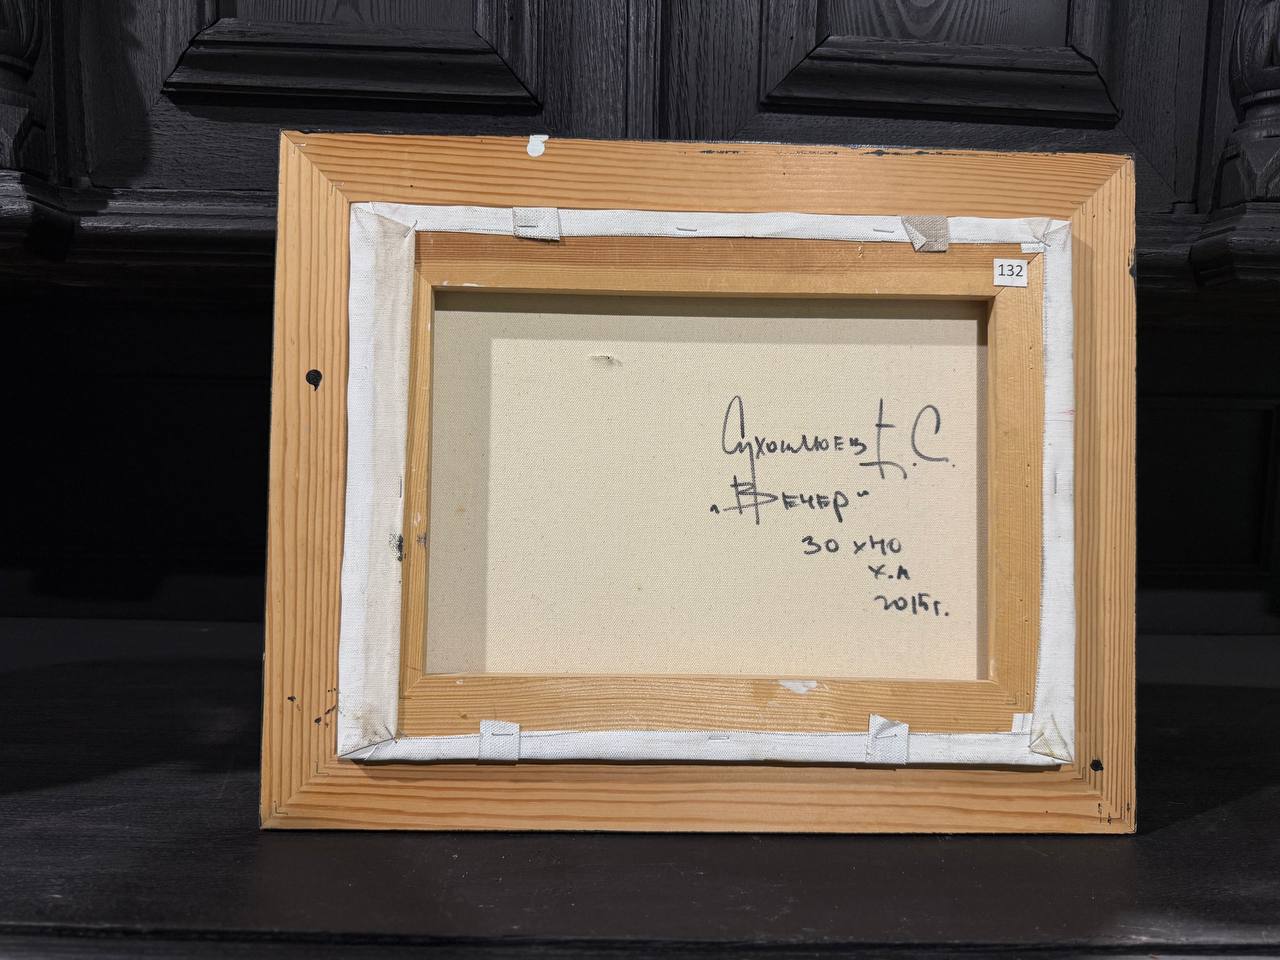 132
Сухоплюев Е.С.
„Вечер“
30 х 40
х.м
2015г.